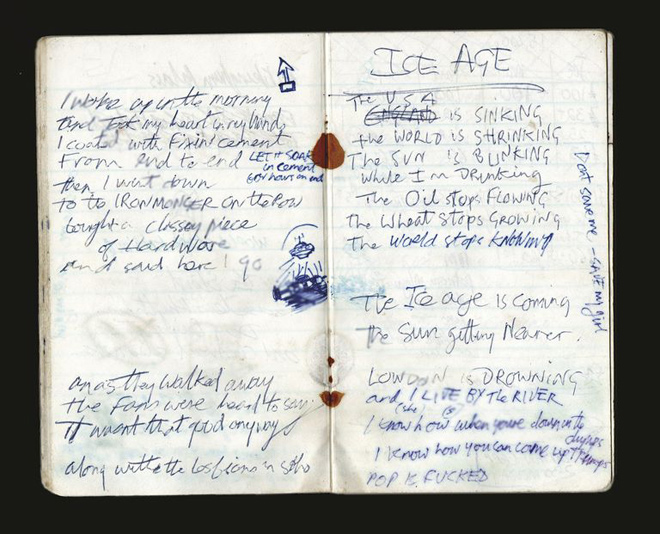 I woke up in the morning
and took my heart in my hand
I coated with Fixin' cement
From end to end
LET IT SOAK
in cement
for hours on end
then I went down
to the IRONMONGER ON the Row
bought a classey piece
of Hardware
and said here I go
an as they walked away
the Fans were heard to say
It wasnt that good anyway
along with the lesbians in soho
ICE AGE
The USA
ENGLAND is SINKING
the WORLD is SHRINKING
The SUN is BLINKING
while I'm Drinking
The Oil stops FLOWING
The Wheat stops GROWING
The World stops Knowing
Dont save me - SAVE my girl
The Ice age is coming
the Sun getting Nearer.
LONDON is DROWNING
and I LIVE BY THE RIVER
I know how when youre down in the
dumps
I know how you can come up trumps
POP IS FUCKED